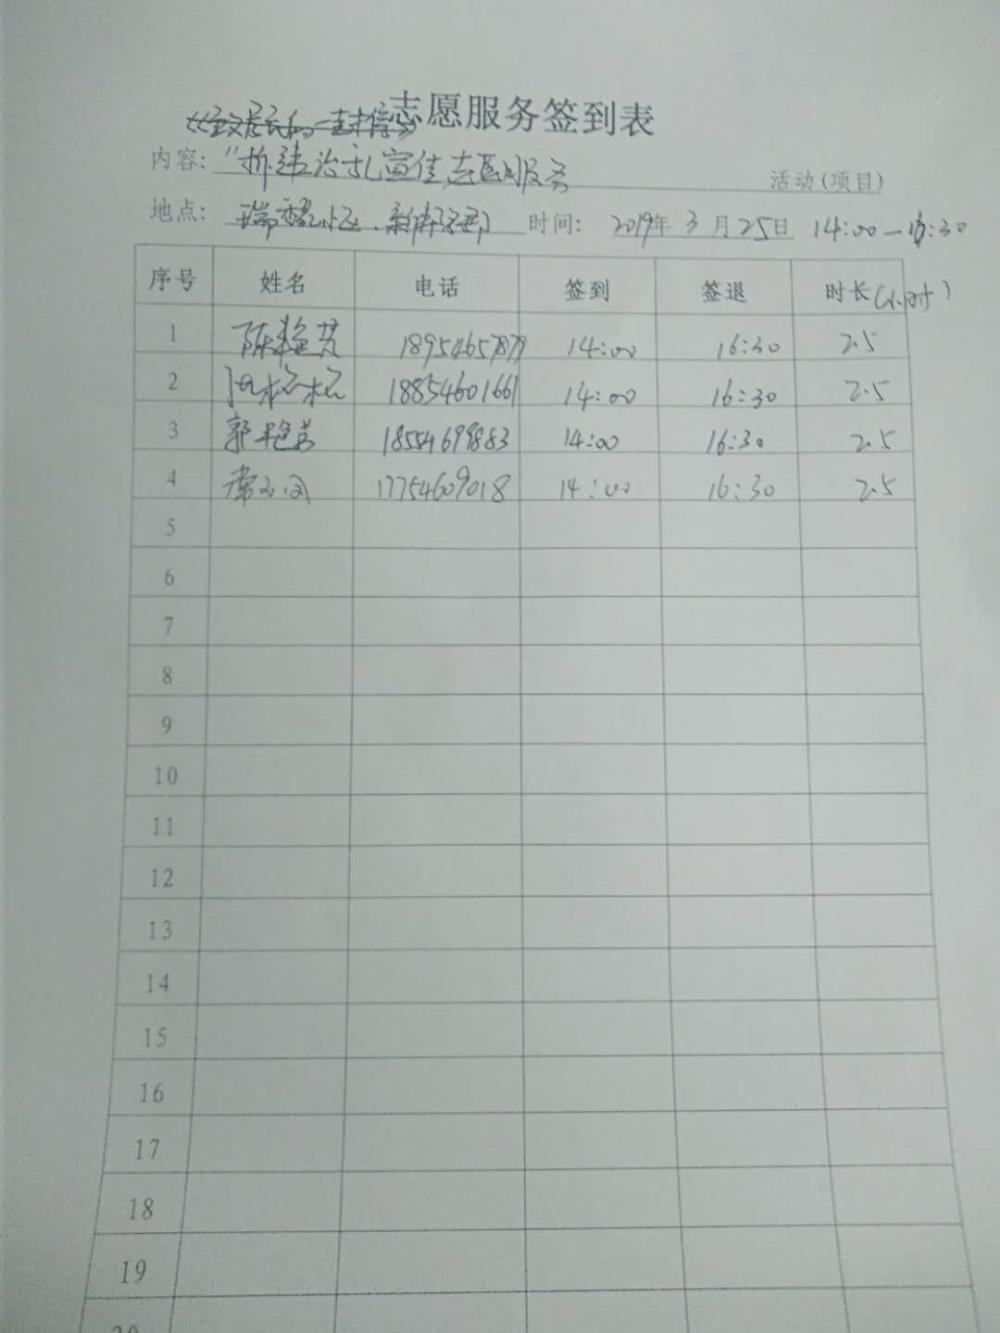 志愿服务签到表
内容: "拆违治乱宣传志愿服务 活动(项目)
地点: 时间: 2019年 3月25日 14:00—16:30
序号 姓名 电话 签到 签退 时长(小时)
1 18954657879 14:00 16:30 2.5
2 18854601661 14:00 16:30 2.5
3 郭艳芳 18554699883 14:00 16:30 2.5
4 17754609018 14:00 16:30 2.5
5
6
7
8
9
10
11
12
13
14
15
16
17
18
19
20